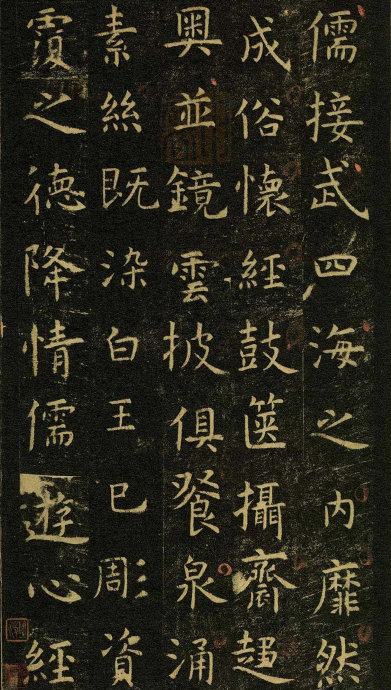 儒接武四海之内靡然
成俗懷經鼓篋攝齋趨
奥並鏡雲披俱餐泉涌
素絲既染白王已彫資
覆之德降情儒遊心經